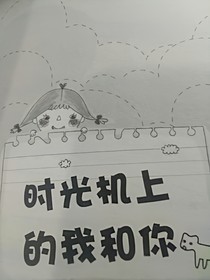 时光机上
的我和你